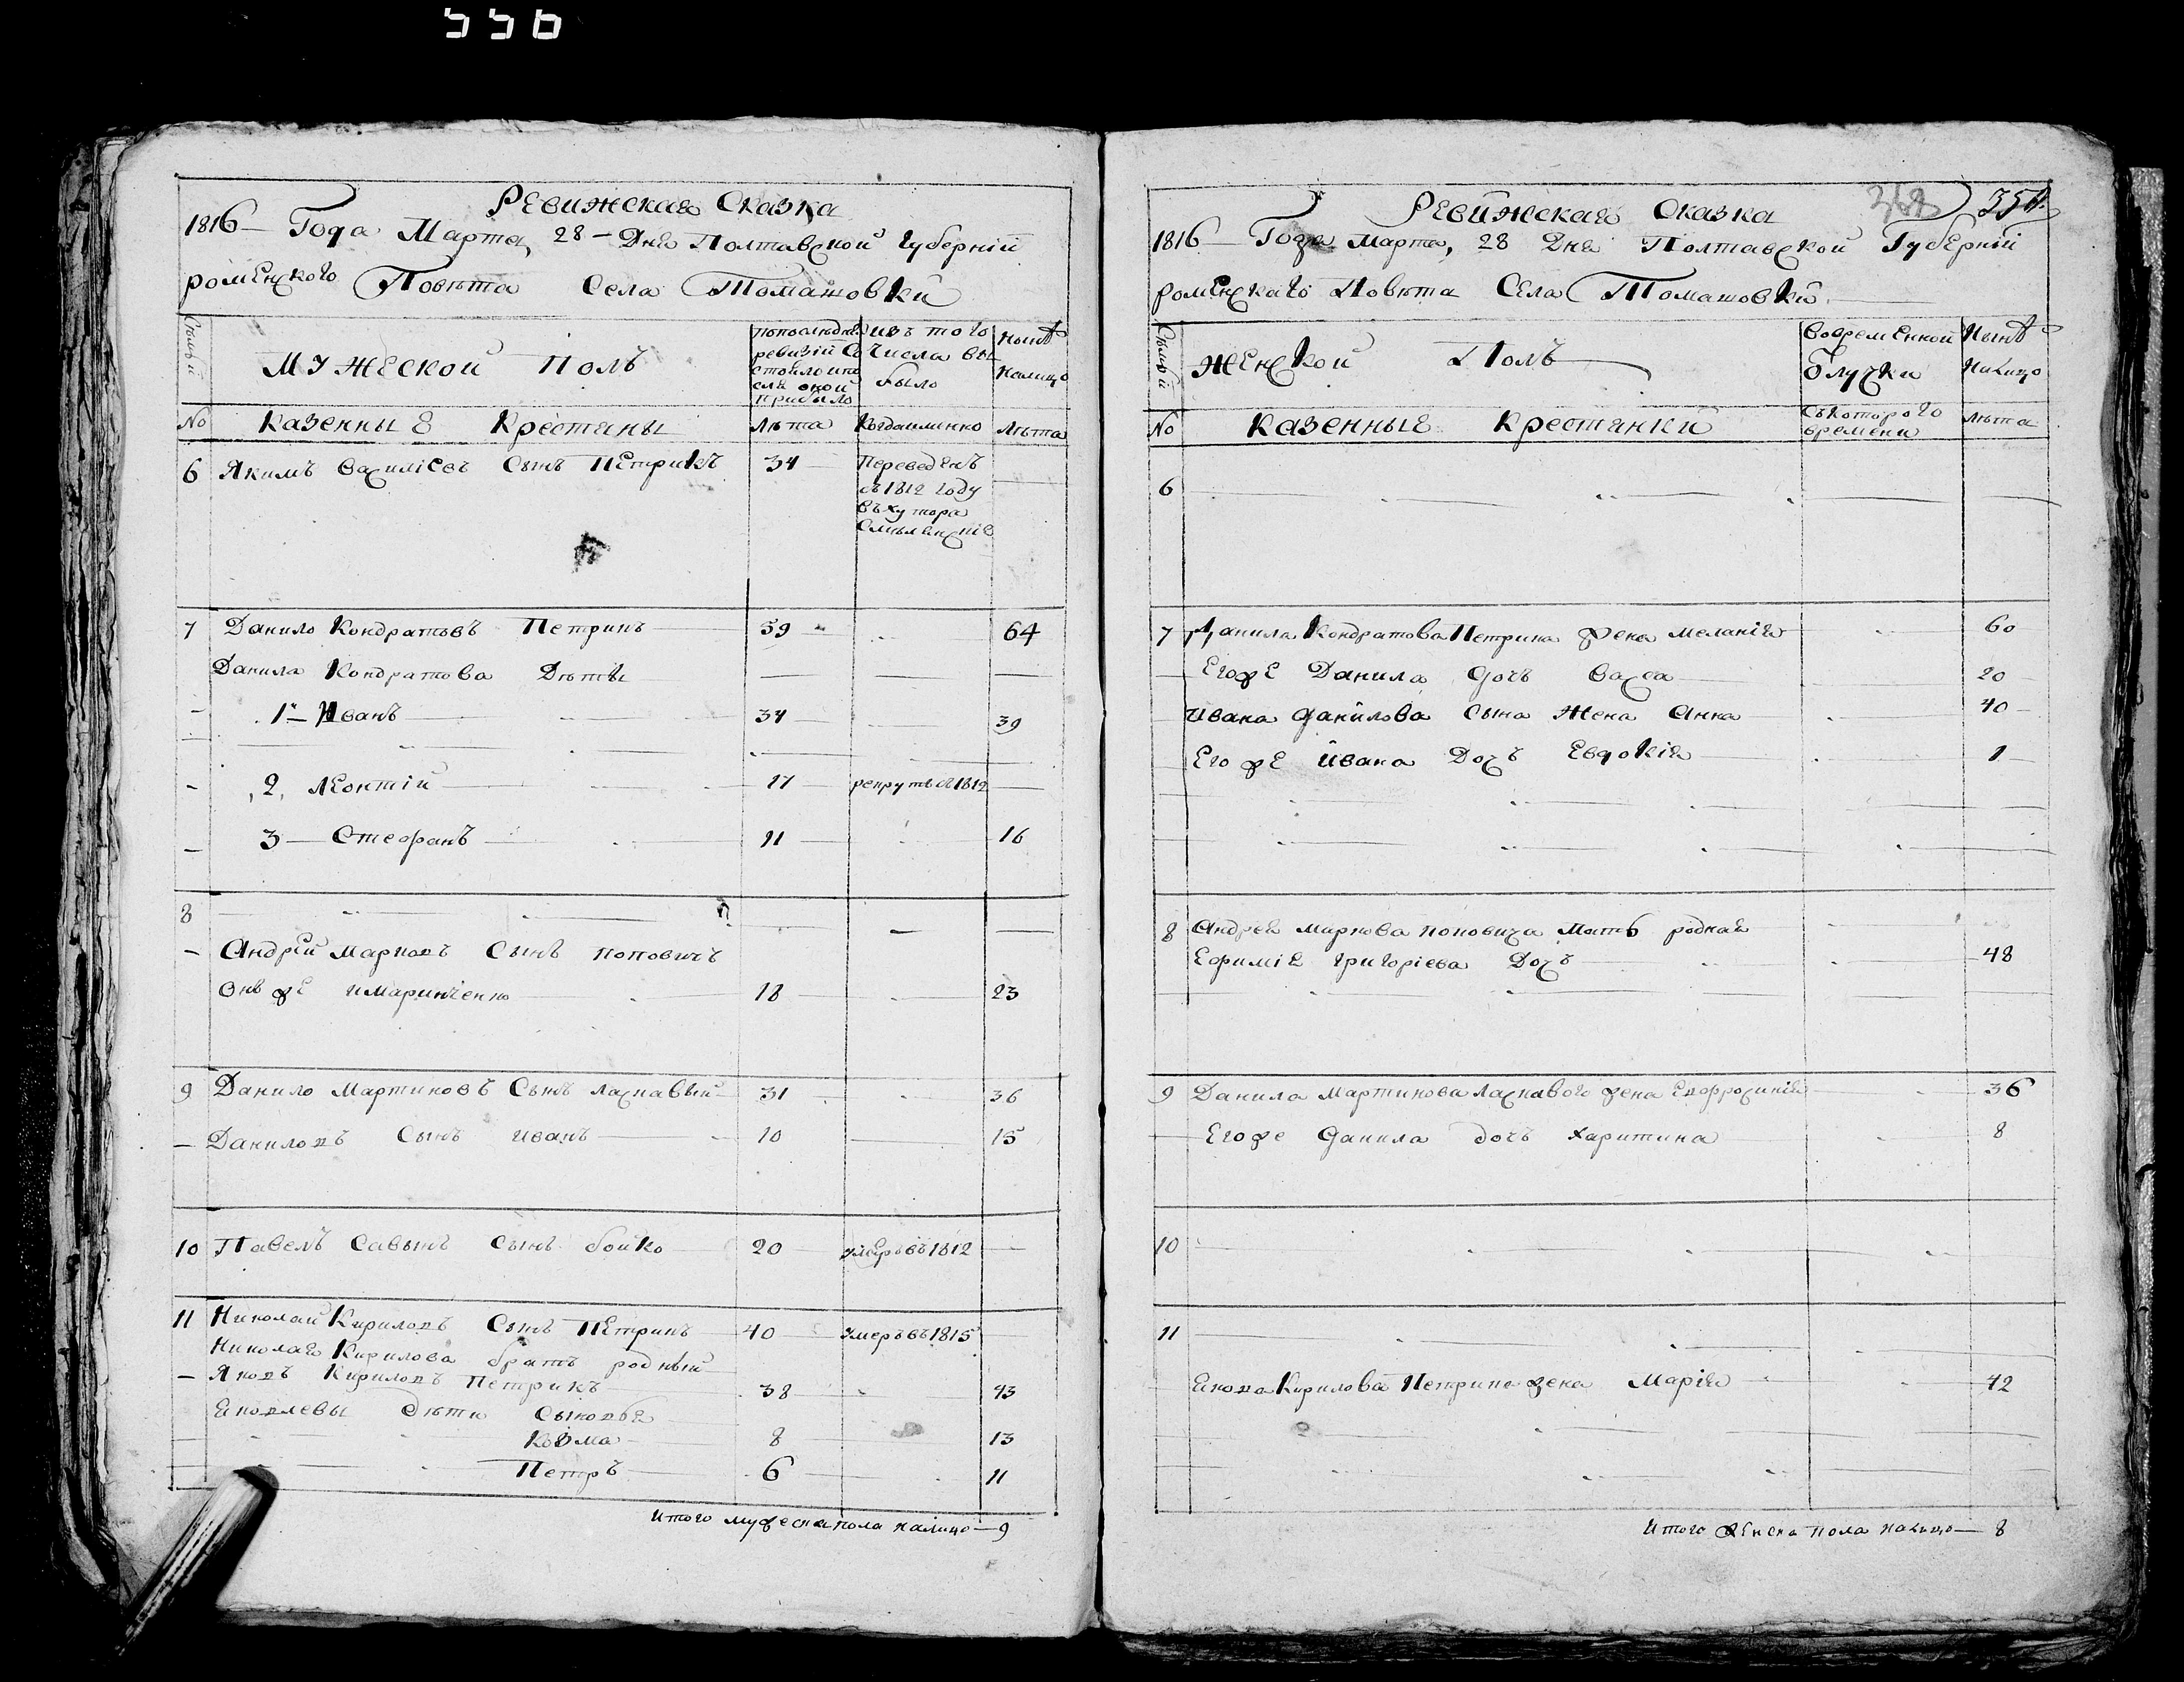 Ревижская Сказка
1816 — Года Марта, 28 — Дня Полтавской Губерніи
роменского Повѣта Села Томашовки
Мужеской Полъ
попоследнѣй ревизіи Состояло ипосле оной прибыло
изъ того Числа выбыло
Нынѣ Налицо
№ казенные Крестяны Лѣта Когдаиминно Лѣта
6 Якимъ Василіевъ Сынъ Петрикъ 34 Переведенъ
въ 1812 году
въ хутора
Смѣлянскіе
7 Данило Кондратовъ Петрикъ 59 64
Данила Кондратова Дѣти
1й Иванъ 34 39
2, Леонтій 17 рекрутъ въ 1812
3 — Стефанъ 11 16
8
Андрей Марковъ Сынъ поповичъ
Онъ же и Маринченко 18 23
9 Данило Мартиновъ Сынъ Ласкавый 31 36
Даниловъ Сынъ иванъ 10 15
10 Павелъ Савинъ Сынъ бойко 20 умеръ въ 1812
11 Николай Кириловъ Сынъ Петрикъ 40 умеръ въ 1815
Николая Кирилова братъ родный
Яковъ Кириловъ Петрикъ 38 43
Яковлевы дѣти Сыновья
Козма 8 13
Петръ 6 11
Итого мужеска пола налицо — 9
368 354
Ревижская Сказка
1816 Года Марта, 28 Дня Полтавской Губерніи
роменскаго Повѣта Села Томашовки
Женской Полъ
Вовременной Отлучки
Нынѣ Налицо
№ казенные Крестянки Съкоторого времени Лѣта
6
7 Данила Кондратова Петрика жена Меланія 60
Егоже Данила дочь Васса 20
Ивана Данилова Сына Жена Анна 40
Егоже Ивана Дочъ Евдокія 1
8 Андрея Маркова поповича Мать родная
Ефимія Григоріева Дочъ 48
9 Данила Мартинова Ласкавого жена Евфросинія 36
Егоже Данила дочъ Харитина 8
10
11
Якова Кирилова Петрика жена Марія 42
Итого женска пола налицо — 8